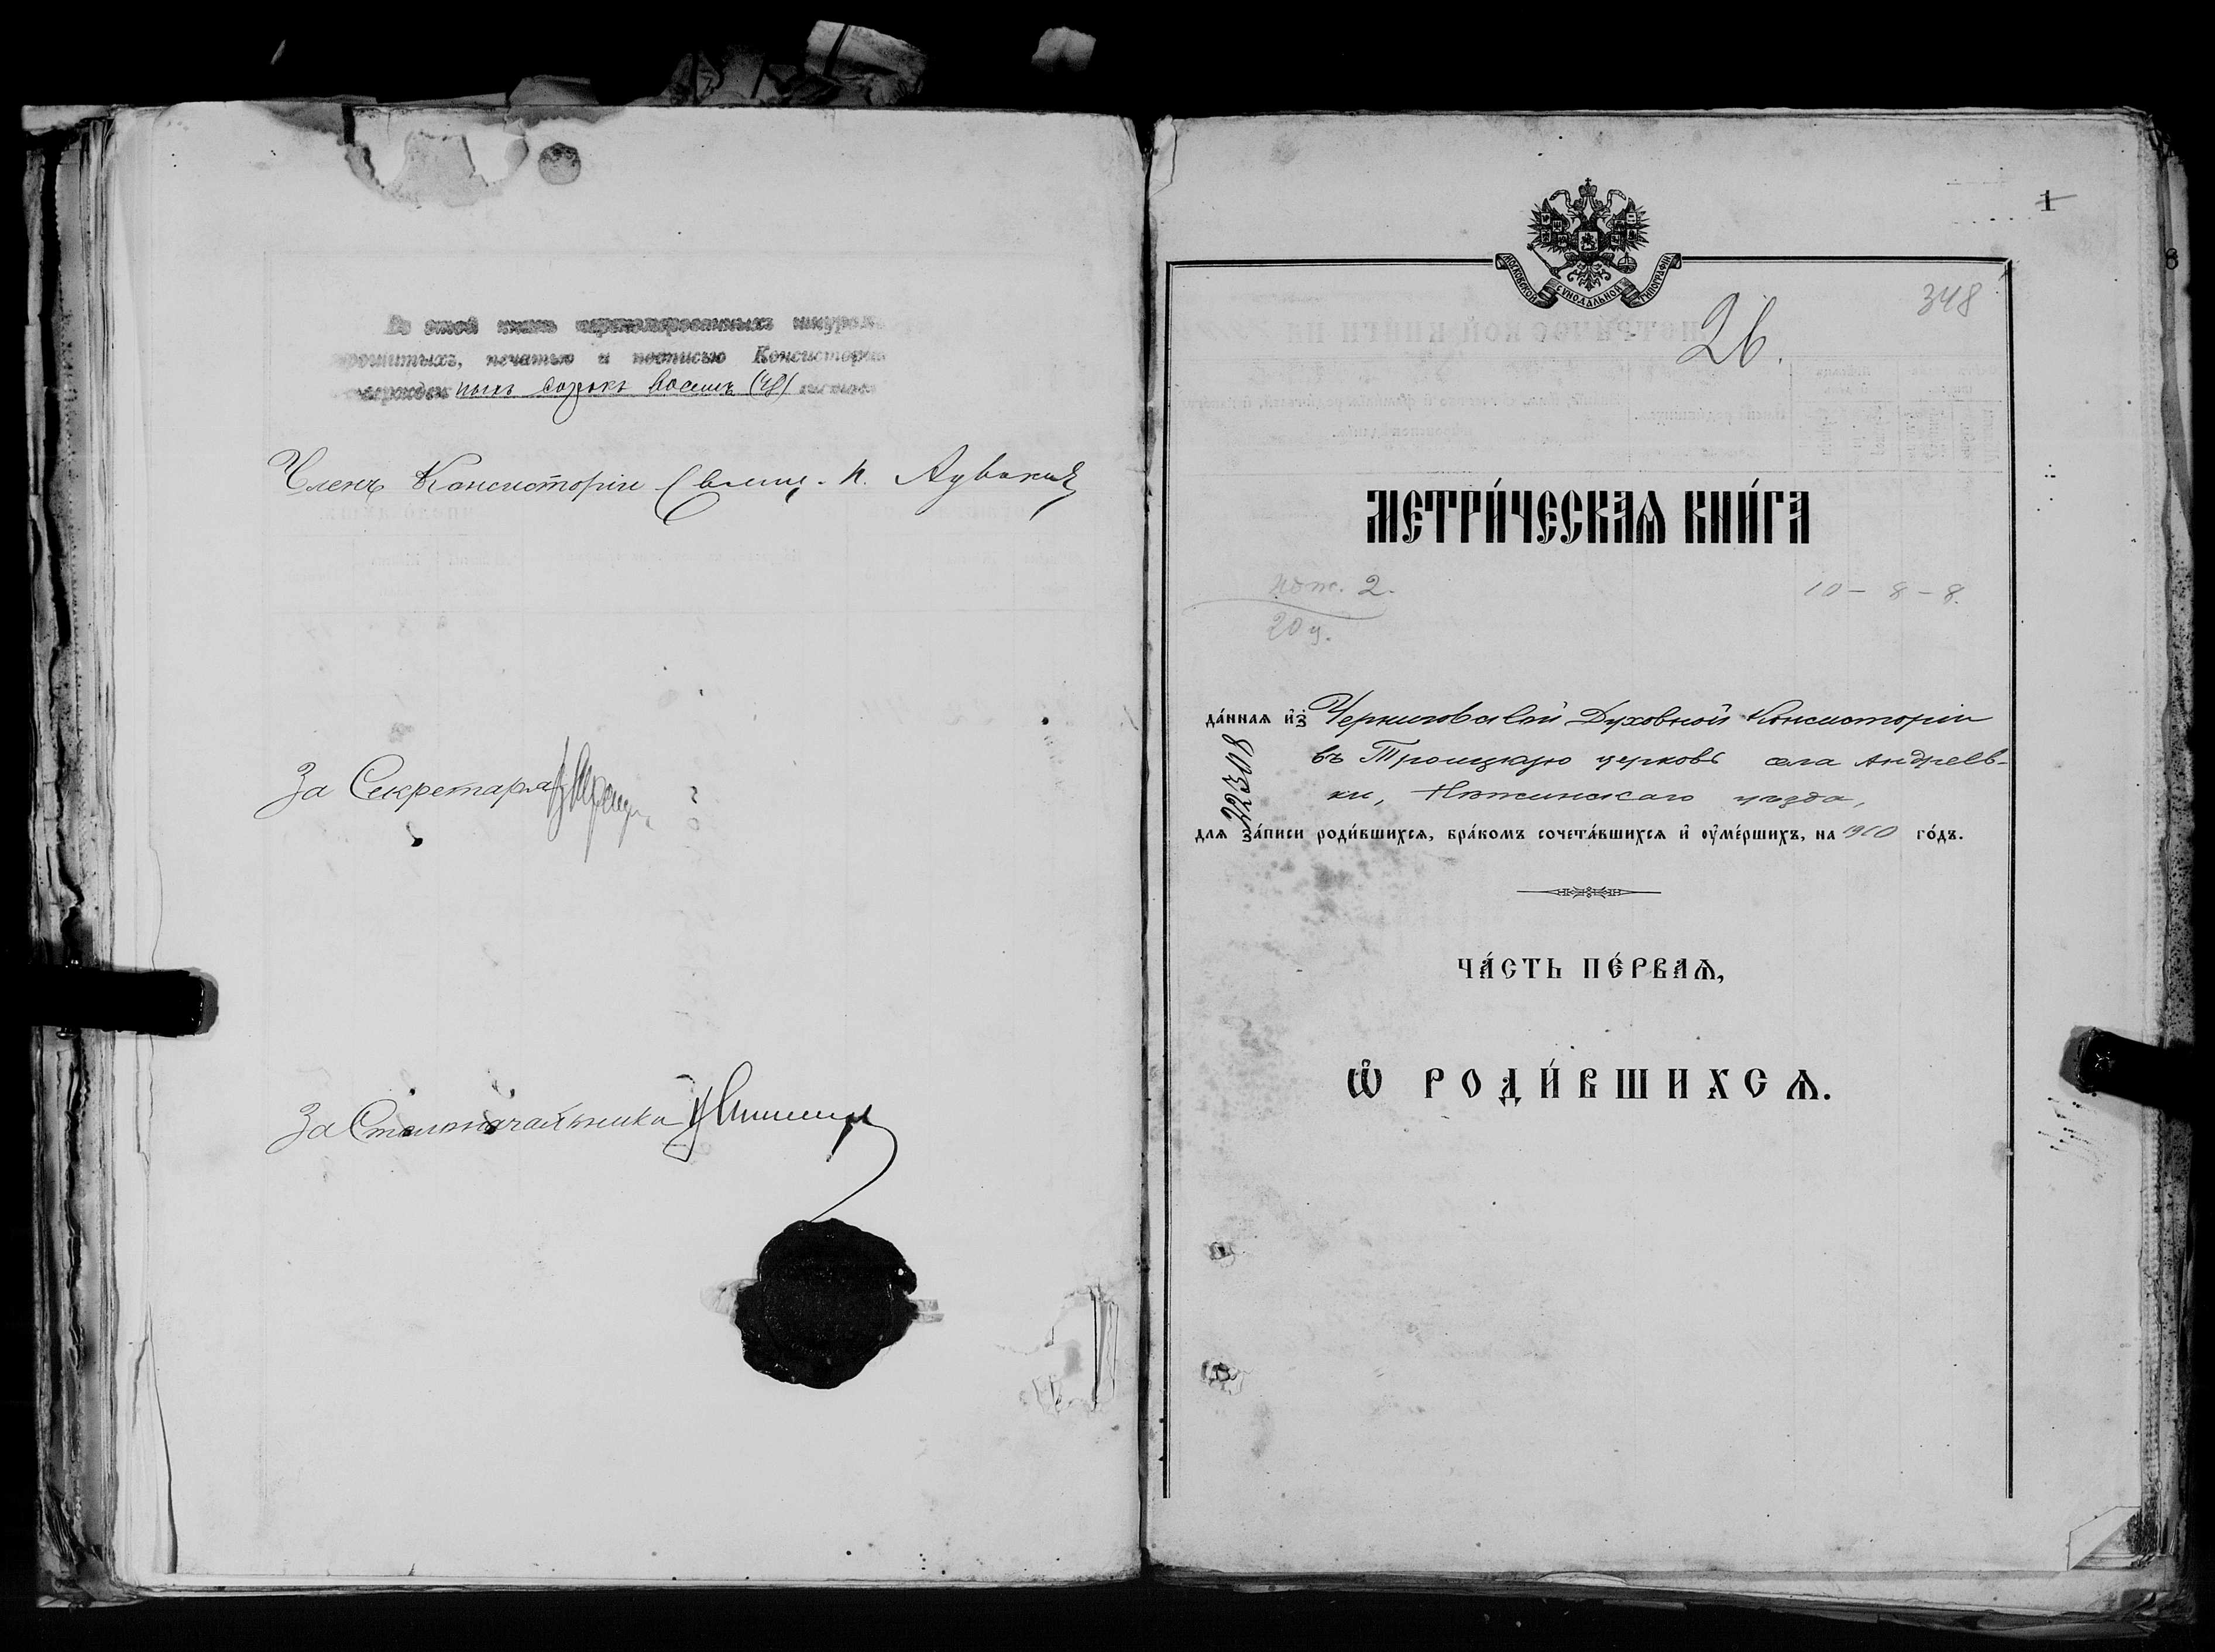 Въ этой книгѣ перенумерованныхъ, шнуромъ
прошитыхъ, печатью и подписью Консисторіи
утвержденныхъ сорокъ восемь (48) листовъ
Членъ Консисторіи Свящ. П.
За Секретаря
За Столоначальника
1
МОСКОВСКОЙ СѴНОДАЛЬНОЙ ТИПОГРАФІИ
348
26.
МЕТРИ́ЧЕСКАѦ КНИ́ГА
2.
10 - 8 - 8.
20
да́ннаѧ и҆з̾ Черниговской Духовной Консисторіи
въ Троицкую церковь села Андреев-
ки, Нѣжинскаго уѣзда,
22308
для за́писи роди́вшихсѧ, бра́комъ сочета́вшихсѧ и҆ ᲂу҆ме́ршихъ, на 1910 го́дъ.
ЧА́СТЬ ПЕ́РВАѦ,
Ѽ РОДИ́ВШИХСѦ.